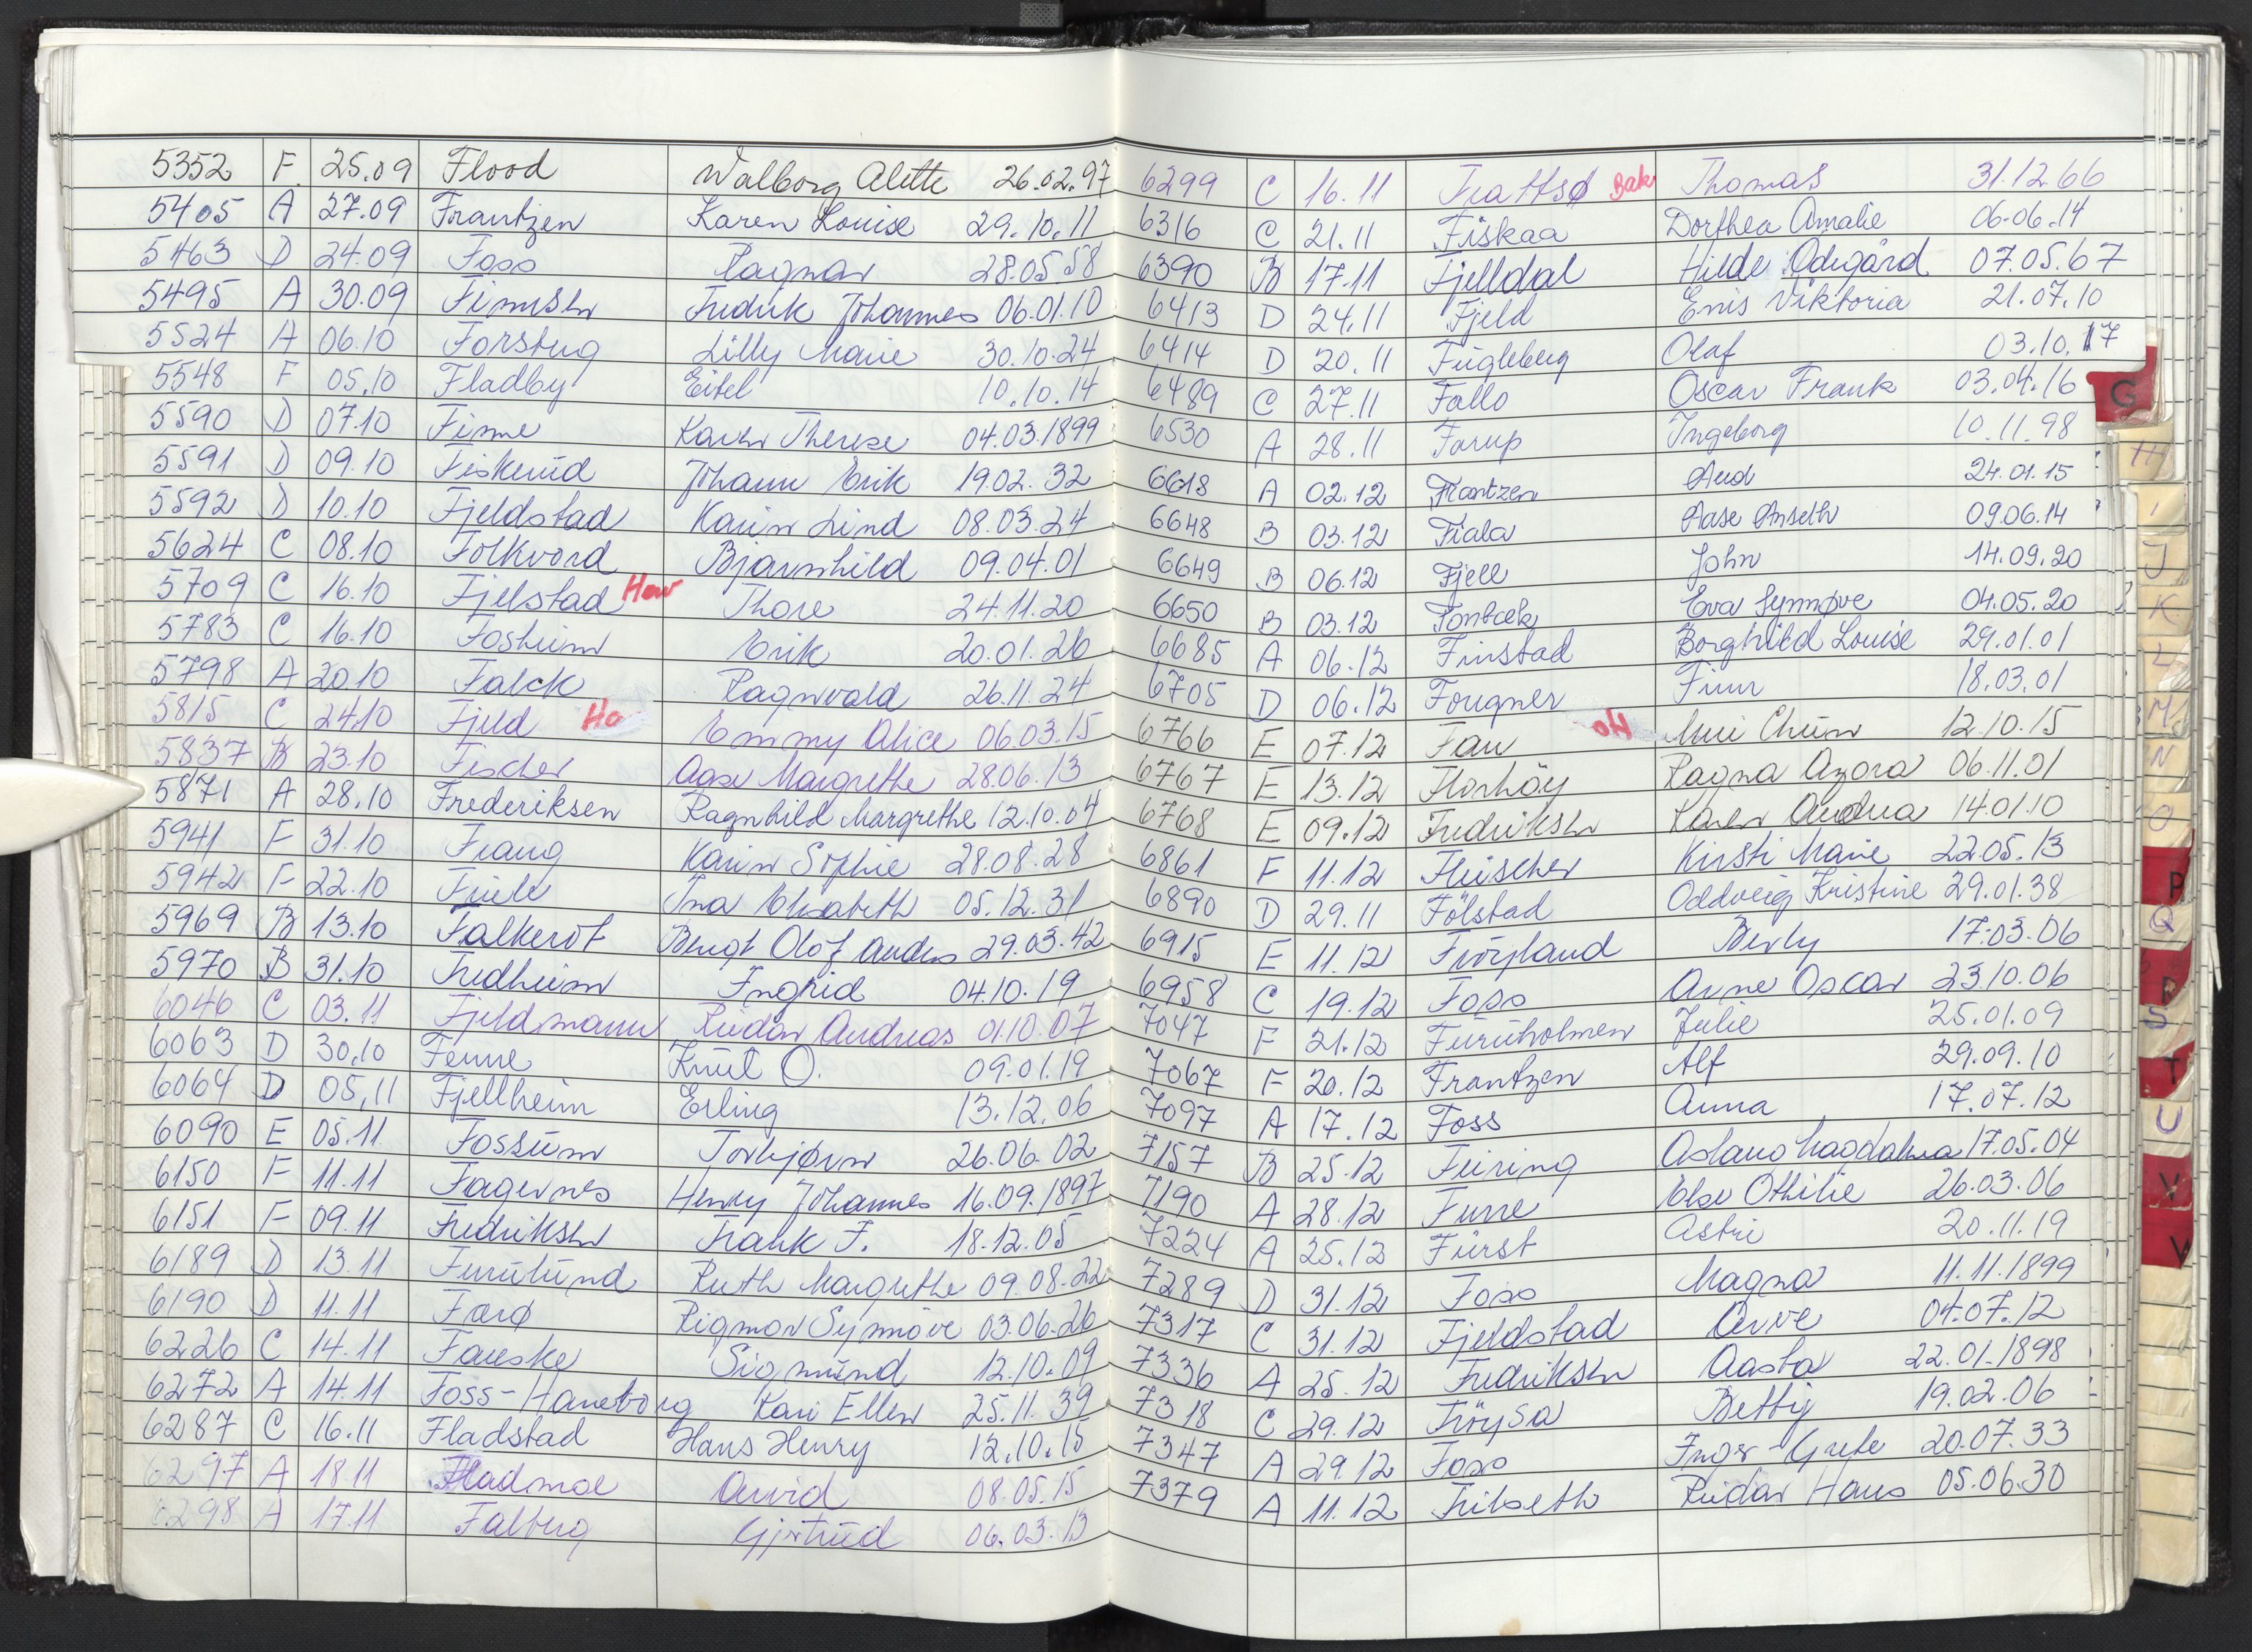 5352 F. 25.09 Flood Walborg Alette 26.02.97
5405 A 27.09 Frantzen Karen Louise 29.10.11
5463 D 24.09 Foss Ragnar 28.05.58
5495 A 30.09 Finnsen Fredrik Johannes 06.01.10
5524 A 06.10 Forsberg Lilly Marie 30.10.24
5548 F 05.10 Fladby Eitel 10.10.14
5590 D 07.10 Finne Karen Therese 04.03.1899
5591 D 09.10 Fiskerud Johann Erik 19.02.32
5592 D 10.10 Fjeldstad Karin Lind 08.03.24
5624 C 08.10 Folkvord Bjarnhild 09.04.01
5709 C 16.10 Fjelstad How Thore 24.11.20
5783 C 16.10 Fosheim Erik 20.01.26
5798 A 20.10 Falck Ragnvald 26.11.24
5815 C 24.10 Fjeld Ho Emmy Alice 06.03.15
5837 B 23.10 Fischer Aase Margrethe 28.06.13
5871 A 28.10 Frederiksen Ragnhild Margrethe 12.10.04
5941 F 31.10 Frang Karin Sophie 28.08.28
5942 F 22.10 Friele Ina Elisabeth 05.12.31
5969 B 13.10 Falkerof Bengt Olof Anders 29.03.42
5970 B 31.10 Fredheim Ingrid 04.10.19
6046 C 03.11 Fjeldmann Reidar Andreas 01.10.07
6063 D 30.10 Fenne Knut O. 09.01.19
6064 D 05.11 Fjellheim Erling 13.12.06
6090 E 05.11 Fossum Torbjørn 26.06.02
6150 F 11.11 Fagernes Henry Johannes 16.09.1897
6151 F 09.11 Fredriksen Frank F. 18.12.05
6189 D 13.11 Furulund Ruth Margrethe 09.08.22
6190 D 11.11 Farø Rigmor Synnöve 03.06.26
6226 C 14.11 Fauske Sigmund 12.10.09
6272 A 14.11 Foss-Haneborg Kari Ellen 25.11.39
6287 C 16.11 Fladstad Hans Henry 12.10.15
6297 A 18.11 Fladmoe Arvid 08.05.15
6298 A 17.11 Falberg Gjertrud 06.03.13
6299 C 16.11 Frattsø Bak Thomas 31.12.66
6316 C 21.11 Fiskaa Dorthea Amalie 06.06.14
6390 B 17.11 Fjelldal Hilde Ødegård 07.05.67
6413 D 24.11 Fjeld Enis Viktoria 21.07.10
6414 D 20.11 Fugleberg Olaf 03.10.17
6489 C 27.11 Fallo Oscar Frank 03.04.16
6530 A 28.11 Farup Ingeborg 10.11.98
6618 A 02.12 Frantzen Aud 24.01.15
6648 B 03.12 Fiala Aase Anseth 09.06.14
6649 B 06.12 Fjell John 14.09.20
6650 B 03.12 Fonbæk Eva Synnøve 04.05.20
6685 A 06.12 Finstad Borghild Louise 29.01.01
6705 D 06.12 Fougner Finn 18.03.01
6766 E 07.12 Fau Ho 12.10.15
6767 E 13.12 Florhöy Ragna Azora 06.11.01
6768 E 09.12 Fredriksen Karen Andrea 14.01.10
6861 F 11.12 Fleischer Kirsti Marie 22.05.13
6890 D 29.11 Fölstad Oddveig Kristine 29.01.38
6915 E 11.12 Fröyland Berly 17.03.06
6958 C 19.12 Foss Arne Oscar 23.10.06
7047 F 21.12 Furuholmen Julie 25.01.09
7067 F 20.12 Frantzen Alf 29.09.10
7097 A 17.12 Foss Anna 17.07.12
7157 B 25.12 Feiring Aslaug Magdalena 17.05.04
7190 A 28.12 Furre Else Othilie 26.03.06
7224 A 25.12 Fürst Astri 20.11.19
7289 D 31.12 Foss Magna 11.11.1899
7317 C 31.12 Fjeldstad Arve 04.07.12
7336 A 25.12 Fredriksen Aasta 22.01.1898
7318 C 29.12 Fröysa Betty 19.02.06
7347 A 29.12 Foss Inger-Grete 20.07.33
7379 A 11.12 Frilseth Reidar Hans 05.06.30
G
H
I
J
K
L
M
N
O
P
Q
R
S
T
U
V